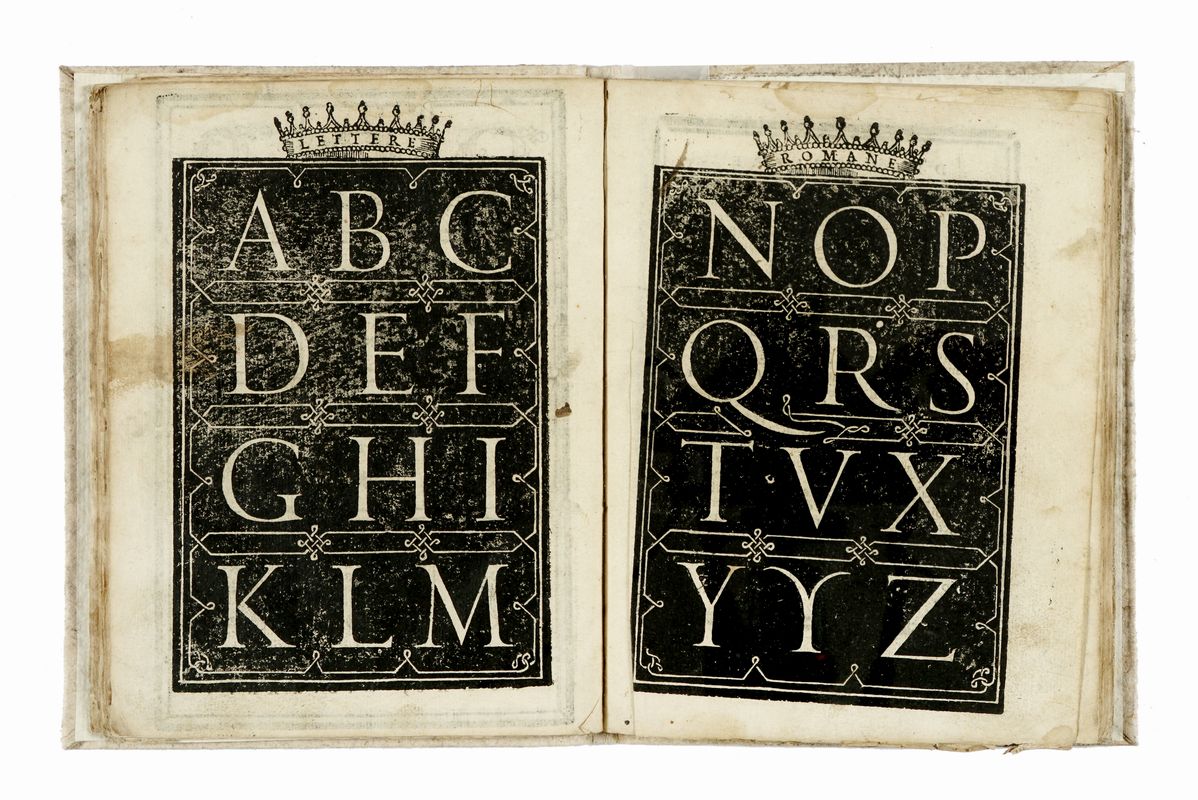 LETTERE
A B C
D E F
G H I
K L M
ROMANE
N O P
Q R S
T V X
Y Y Z